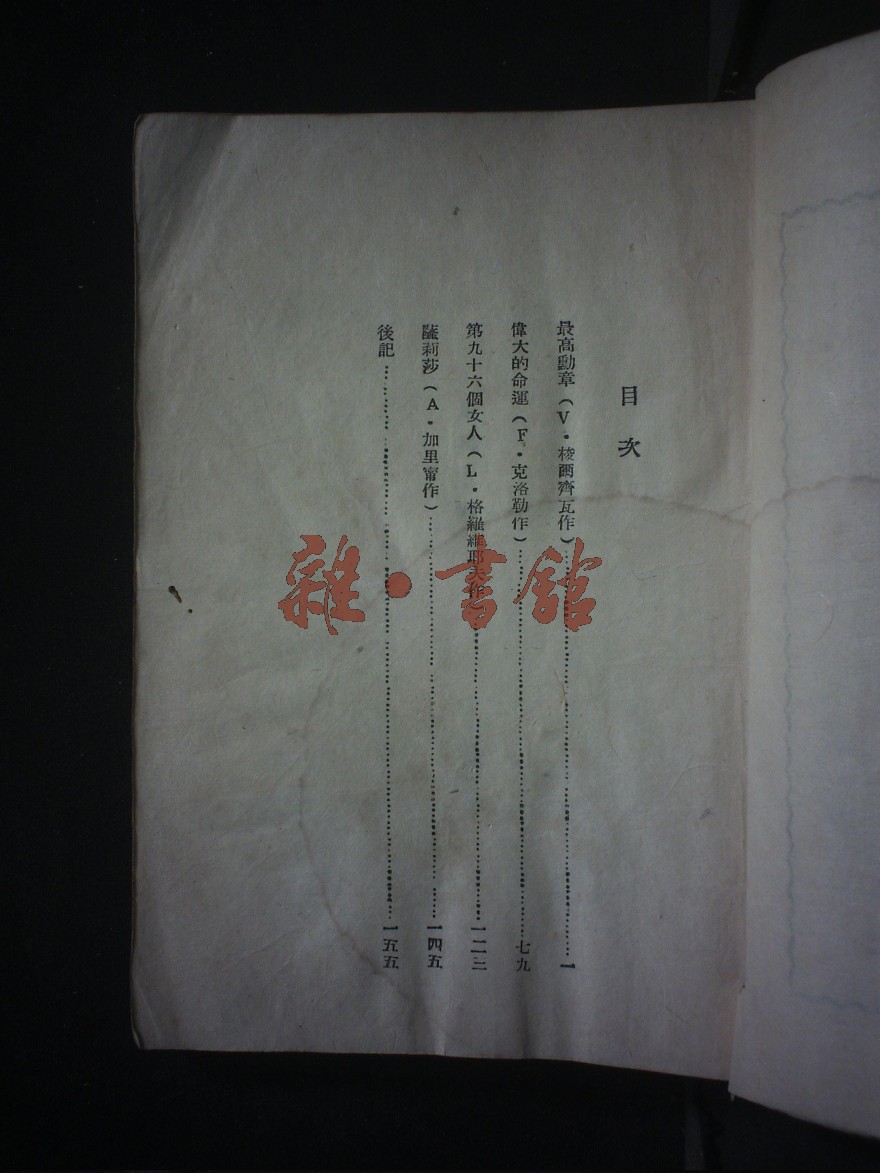 目次
最高勳章（V・梭爾齊瓦作）……一
偉大的命運（F・克洛勒作）……七九
第九十六個女人（L・格羅維耶夫作）……一二三
薩莉莎（A・加里甯作）……一四五
後記……一五五
雜・書館